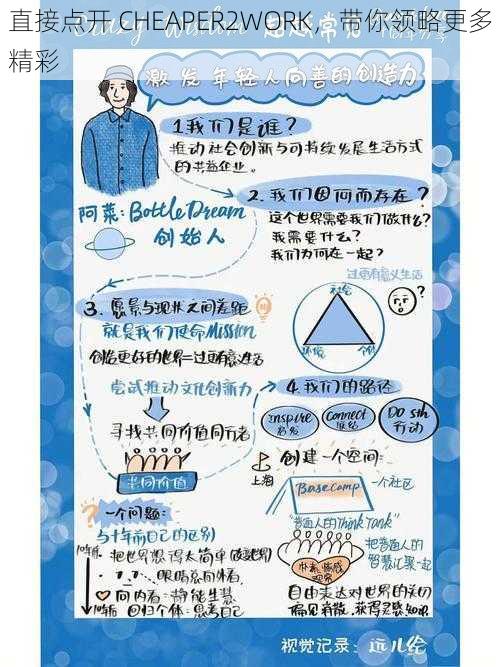 直接点开 CHEAPER2WORK，带你领略更多
精彩
激发年轻人向善的创造力
1 我们是谁？
推动社会创新与可持续发展生活方式
的共益企业。
2. 我们因何而存在？
这个世界需要我们做什么？
我需要什么？
我们为何在一起？
阿菜：BottleDream
创始人
过更有意义生活
社会
环境
个
？
3. 愿景与现状之间差距
就是我们使命Mission
创造更好的世界=过更有意义生活
尝试推动文化创新力
寻找共同价值同行者
共同价值
4. 我们的路径
Inspire
启发
Connect
连结
Do sth
行动
创建一个空间：
上海
BaseCamp
一个社区
"普通人的Think Tank"
把普通人的
智慧汇聚一起
自由表达对世界的关切
一个问题：
与十年前自己的区别
10年前
把世界想得太简单
向内看：
10年后
回归个体：
视觉记录：远儿绘